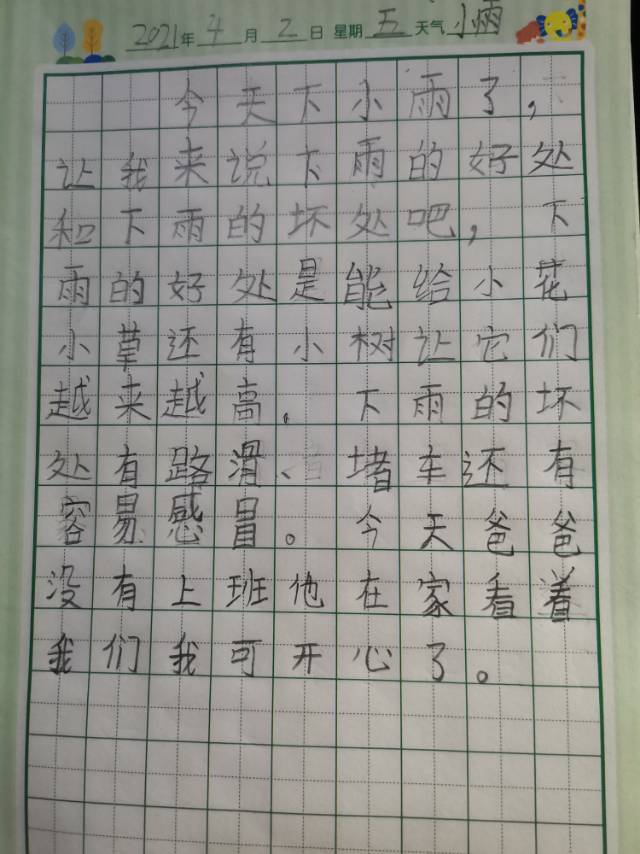 2021年4月2日 星期五 天气小雨
今天下小雨了,
让我来说下雨的好处
和下雨的坏处吧,下
雨的好处是能给小花
小草还有小树让它们
越来越高.下雨的坏
处有路滑、堵车还有
容易感冒。今天爸爸
没有上班他在家看着
我们我可开心了。